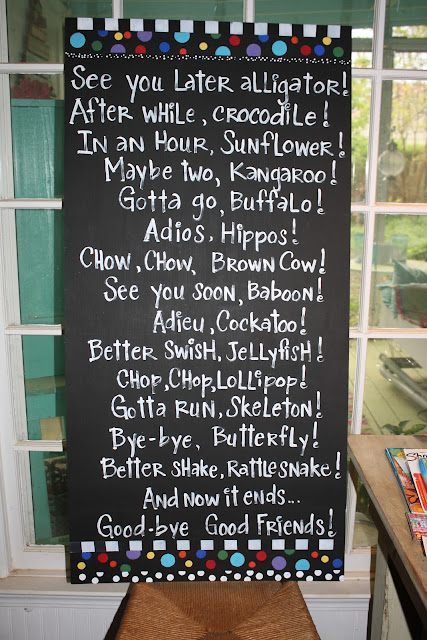 See you Later alligator!
After while, crocodile!
In an Hour, Sunflower!
Maybe two, Kangaroo!
Gotta go, Buffalo!
Adios, Hippos!
Chow, Chow, Brown Cow!
See you soon, Baboon!
Adieu, Cockatoo!
Better Swish, Jellyfish!
Chop, Chop, Lollipop!
Gotta run, Skeleton!
Bye-bye, Butterfly!
Better shake, Rattlesnake!
And now it ends...
Good-bye Good Friends!